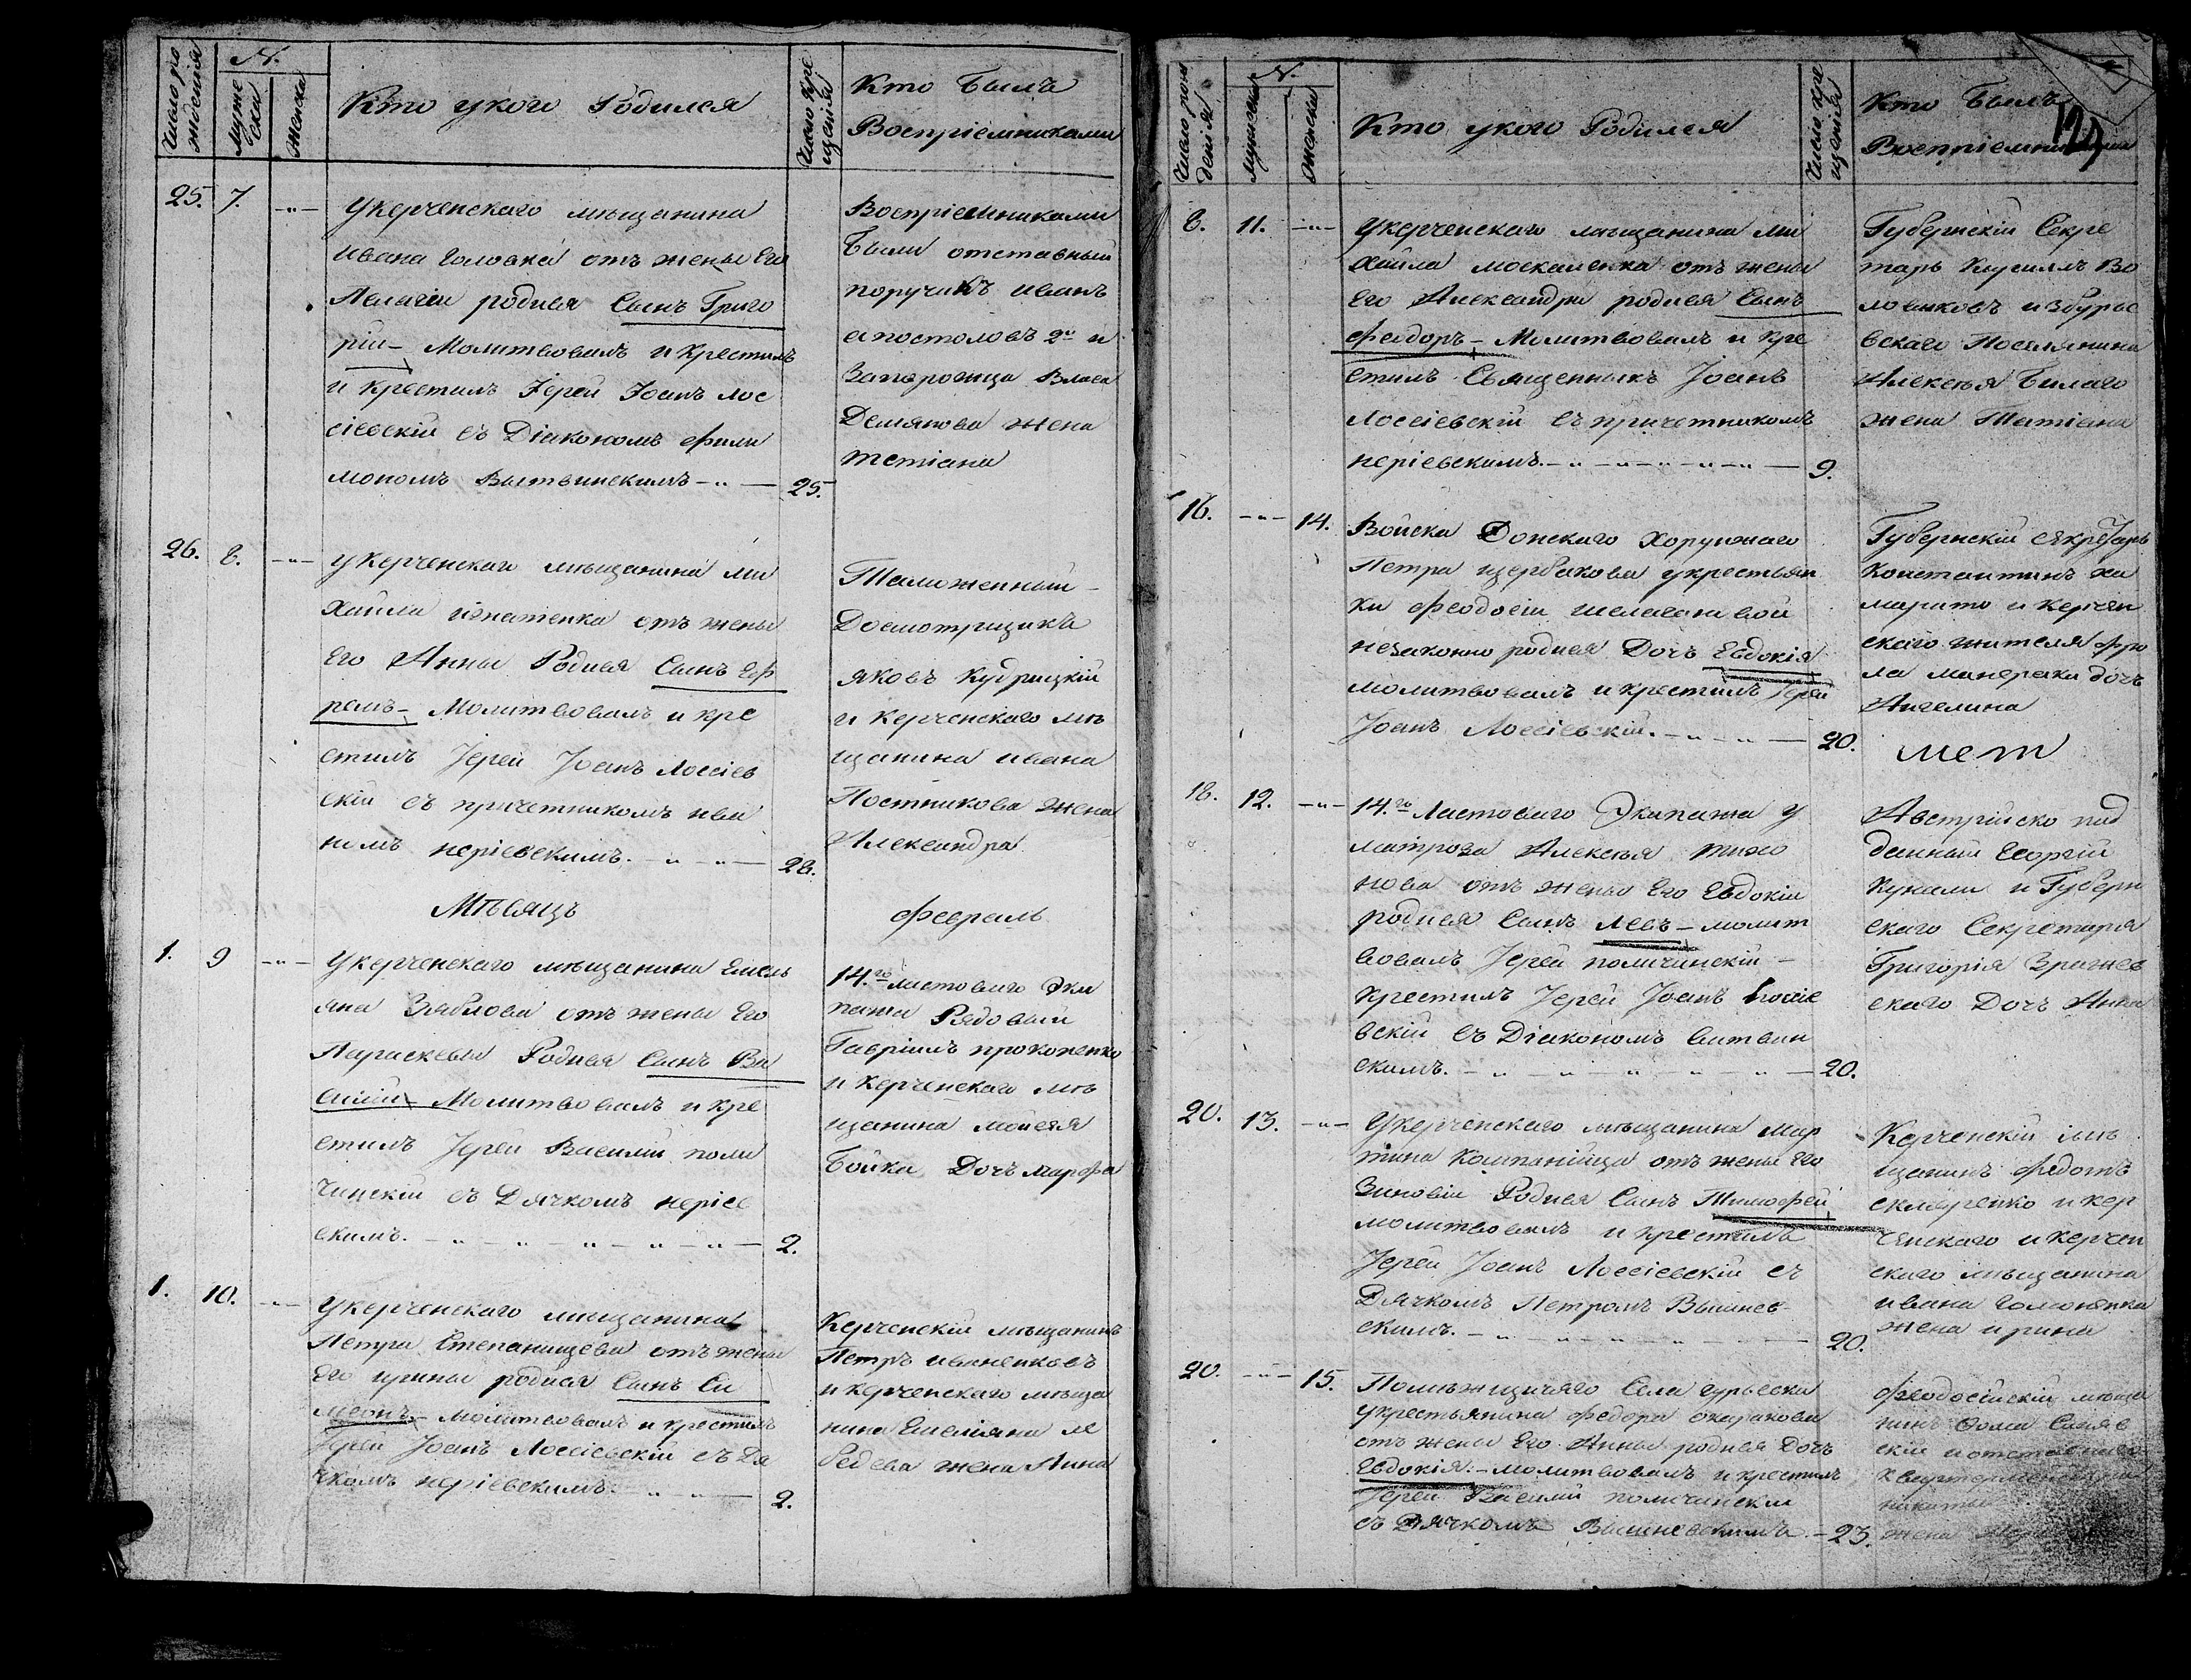 Число ро
ждения
N.
муже
ска
женска
Кто укого Родился
Число кре
щенія
Кто былъ
Восприемниками
25. 7. -"-
Укерченскаго мѣщанина
ивана головка отъ жены Его
Пелагеи родися Сынъ Григо
рій - Молитвовалъ и крестилъ
и крестилъ Іерей Іоанъ лос
сіевскій съ Діакономъ фили
мономъ Вытвинскимъ -"- 25.
Восприемниками
были отставный
поручикъ иванъ
апостоловъ 2й и
Запорожца Власа
Демянова жена
татіана
26. 8. -"-
укерченскаго мѣщанина ми
хайла игнатенка отъ жены
Его Анны Родися Сынъ Еф
ремъ - Молитвовалъ и кре
стилъ Іерей Іоанъ лоссіев
скій съ причетникомъ ива
номъ неріевскимъ. -"-"- 28.
Таможенный
Досмотрщикъ
яковъ Кудрицкій
и Керченскаго мѣ
щанина ивана
Постникова жена
Александра
Мѣсяцъ февраль
1. 9 -"-
Укерченскаго мѣщанина Емель
яна Зяблова отъ жены Его
Параскевы Родися Сынъ Ва
силій - Молитвовалъ и кре
стилъ Іерей Василій поли
чинскій съ Дячкомъ неріев
скимъ. -"-"-"-"-"- 2.
14.го ластоваго Эки
пажа Рядовый
Гавріилъ прокопенко
и Керченскаго мѣ
щанина мойсея
Бойка Дочъ марфа
1. 10. -"-
Укерченскаго мищанина
Петра Степанищева отъ жены
Его ирины родися Сынъ Си
меонъ - молитвовалъ и крестилъ
Іерей Іоанъ Лоссіевскій съ Дя
чкомъ неріевскимъ -"-"- 2.
Керченскій мѣщанинъ
Петръ иваненковъ
и керченскаго мѣща
нина Емелiана ле
бедева жена Анна
Число рож
денія
N.
мужеска
женска
Кто укого Родился
Число кре
щенія
Кто былъ
Восприемниками
8. 11. -"-
Укерченскаго мѣщанина ми
хайла москаленка отъ жены
Его Александры родися Сынъ
феодоръ - Молитвовалъ и кре
стилъ Священникъ Іоанъ
Лоссіевскій съ причетникомъ
неріевскимъ. -"-"-"-"-"- 9.
Губернскій Секре
тарь Кириллъ Во
ловиковъ и збурье
вскаго Поселянина
Алексѣя Билаго
жена Татіана
16. -"- 14.
Войска Донскаго Хорунжаго
Петра щербакова укрестьян
ки феодосіи
незаконно родися Дочъ Евдокія
молитвовалъ и крестилъ Іерей
Іоанъ Лоссіевскій. -"-"- 20.
Губернскій секретарь
Константинъ ха
марито и керчен
скаго жителя фро
ла манераки дочъ
Ангелина
18. 12. -"-
14.го Ластоваго Экипажа у
матроза Алексѣя тихо
нова отъ жены Его Евдокіи
родися Сынъ Левъ - молит
вовалъ Іерей поличинскій -
крестилъ Іерей Іоанъ Лоссіе
вскій съ Діакономъ витвин
скимъ. -"-"-"-"-"- 20.
Австрійско под
данный Георгій
Кунали и Губерн
скаго Секретаря
Григорія
скаго Дочъ Анна
20. 13. -"-
Укерченскаго мѣщанина мар
тина Компанійца отъ жены Его
Зиновіи Родися Сынъ Тимофей
молитвовалъ и крестилъ
Іерей Іоанъ Лоссіевскій съ
Дячкомъ Петромъ Вышнев-
скимъ. -"-"-"-"- 20.
Керченскій мѣ
щанинъ федотъ
скляренко и кер
ченскаго и керчен
скаго мѣщанина
ивана
жена ирина
20. -"- 15.
Помѣжщичяго Села гурьевки
укрестьянина федора
отъ жены Его Анны родися Дочъ
Евдокія. - молитвовалъ и крестилъ
Іерей Василій поличински
съ Дячкомъ Вышневскимъ. - 23.
феодосійскій мѣща
нинъ фома Синяв
скій и отставнаго
жена